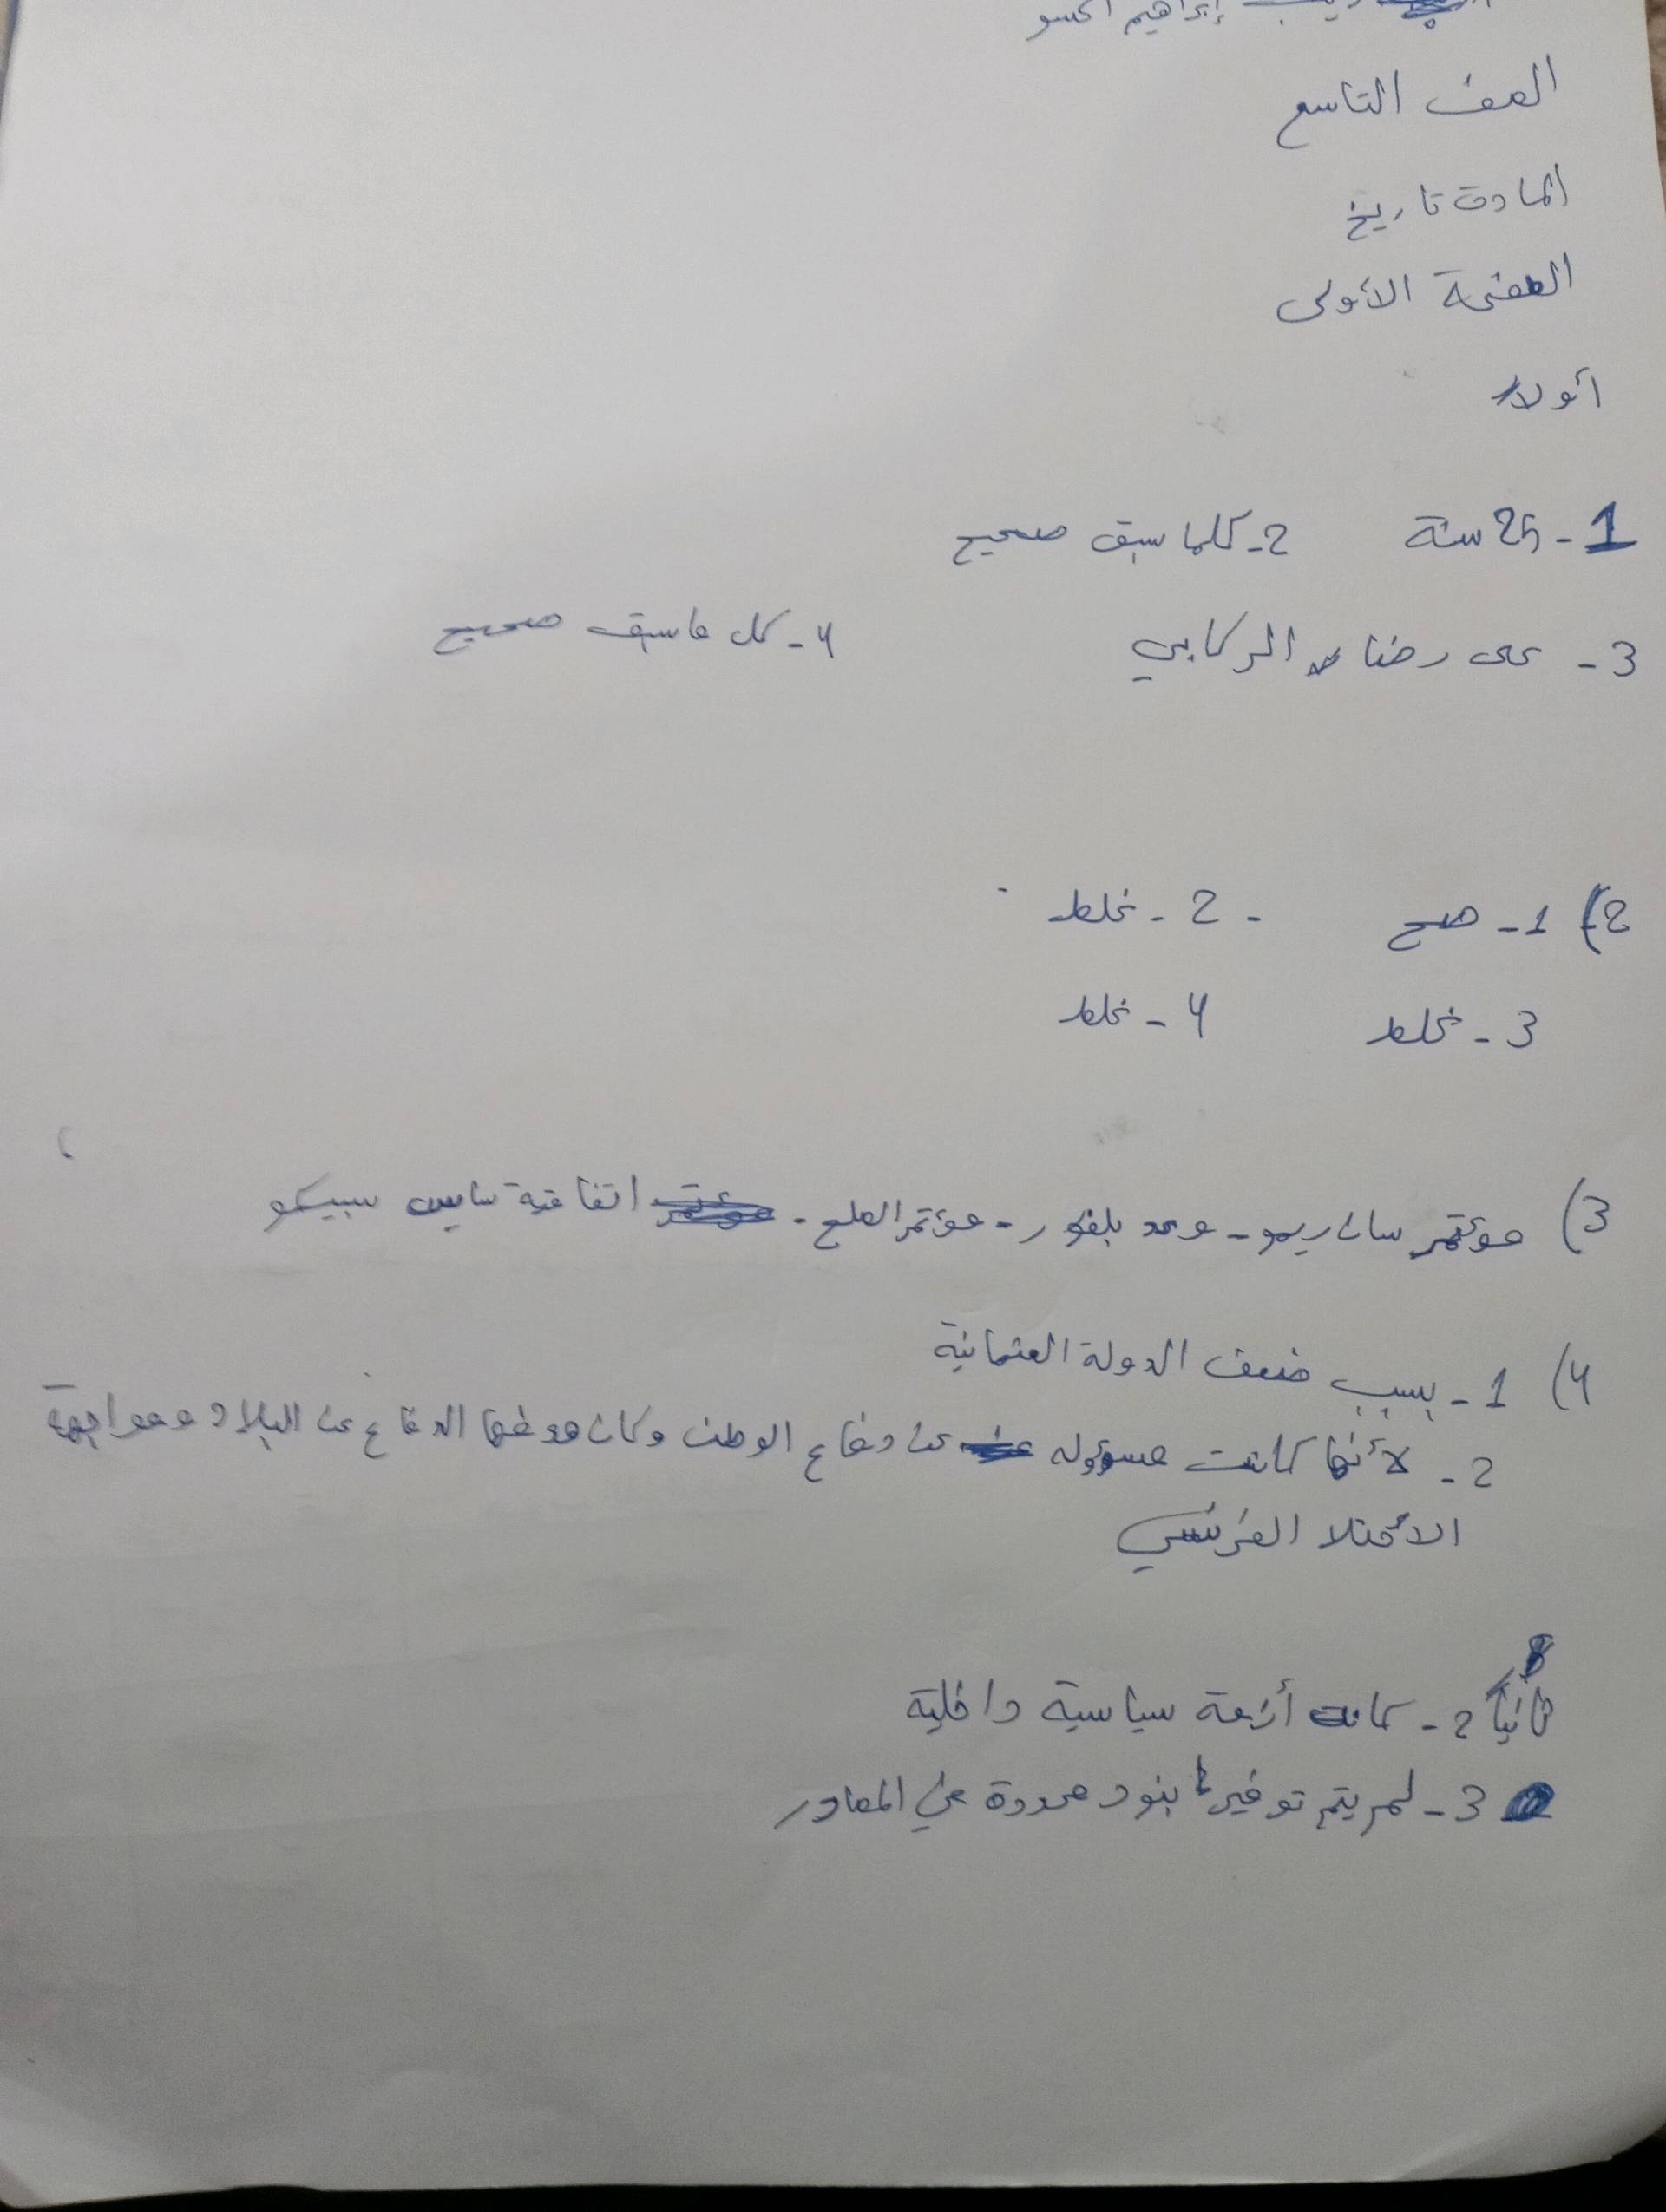 إبراهيم الحسو
الصف التاسع
المادة تاريخ
الصفحة الأولى
أولاً
1 - 25 سنة 2 - كلما سبق صحيح
3 - على رضا الركابي 4 - كل ماسبق صحيح
2) 1 - صح - 2 - غلط
3 - غلط 4 - غلط
3) مؤتمر سان ريمو - وعد بلفور - مؤتمر الصلح - اتفاقية سايس سبيكو
4) 1 - بسبب ضعف الدولة العثمانية
2 - لأنها كانت مسؤوله عن دفاع الوطن وكان هدفها الدفاع عن البلاد ومواجهة
الأحتلا الفرنسي
ثانياً 2 - كانت أزمة سياسية داخلية
3 - لم يتم توفير بنود محددة في المصادر